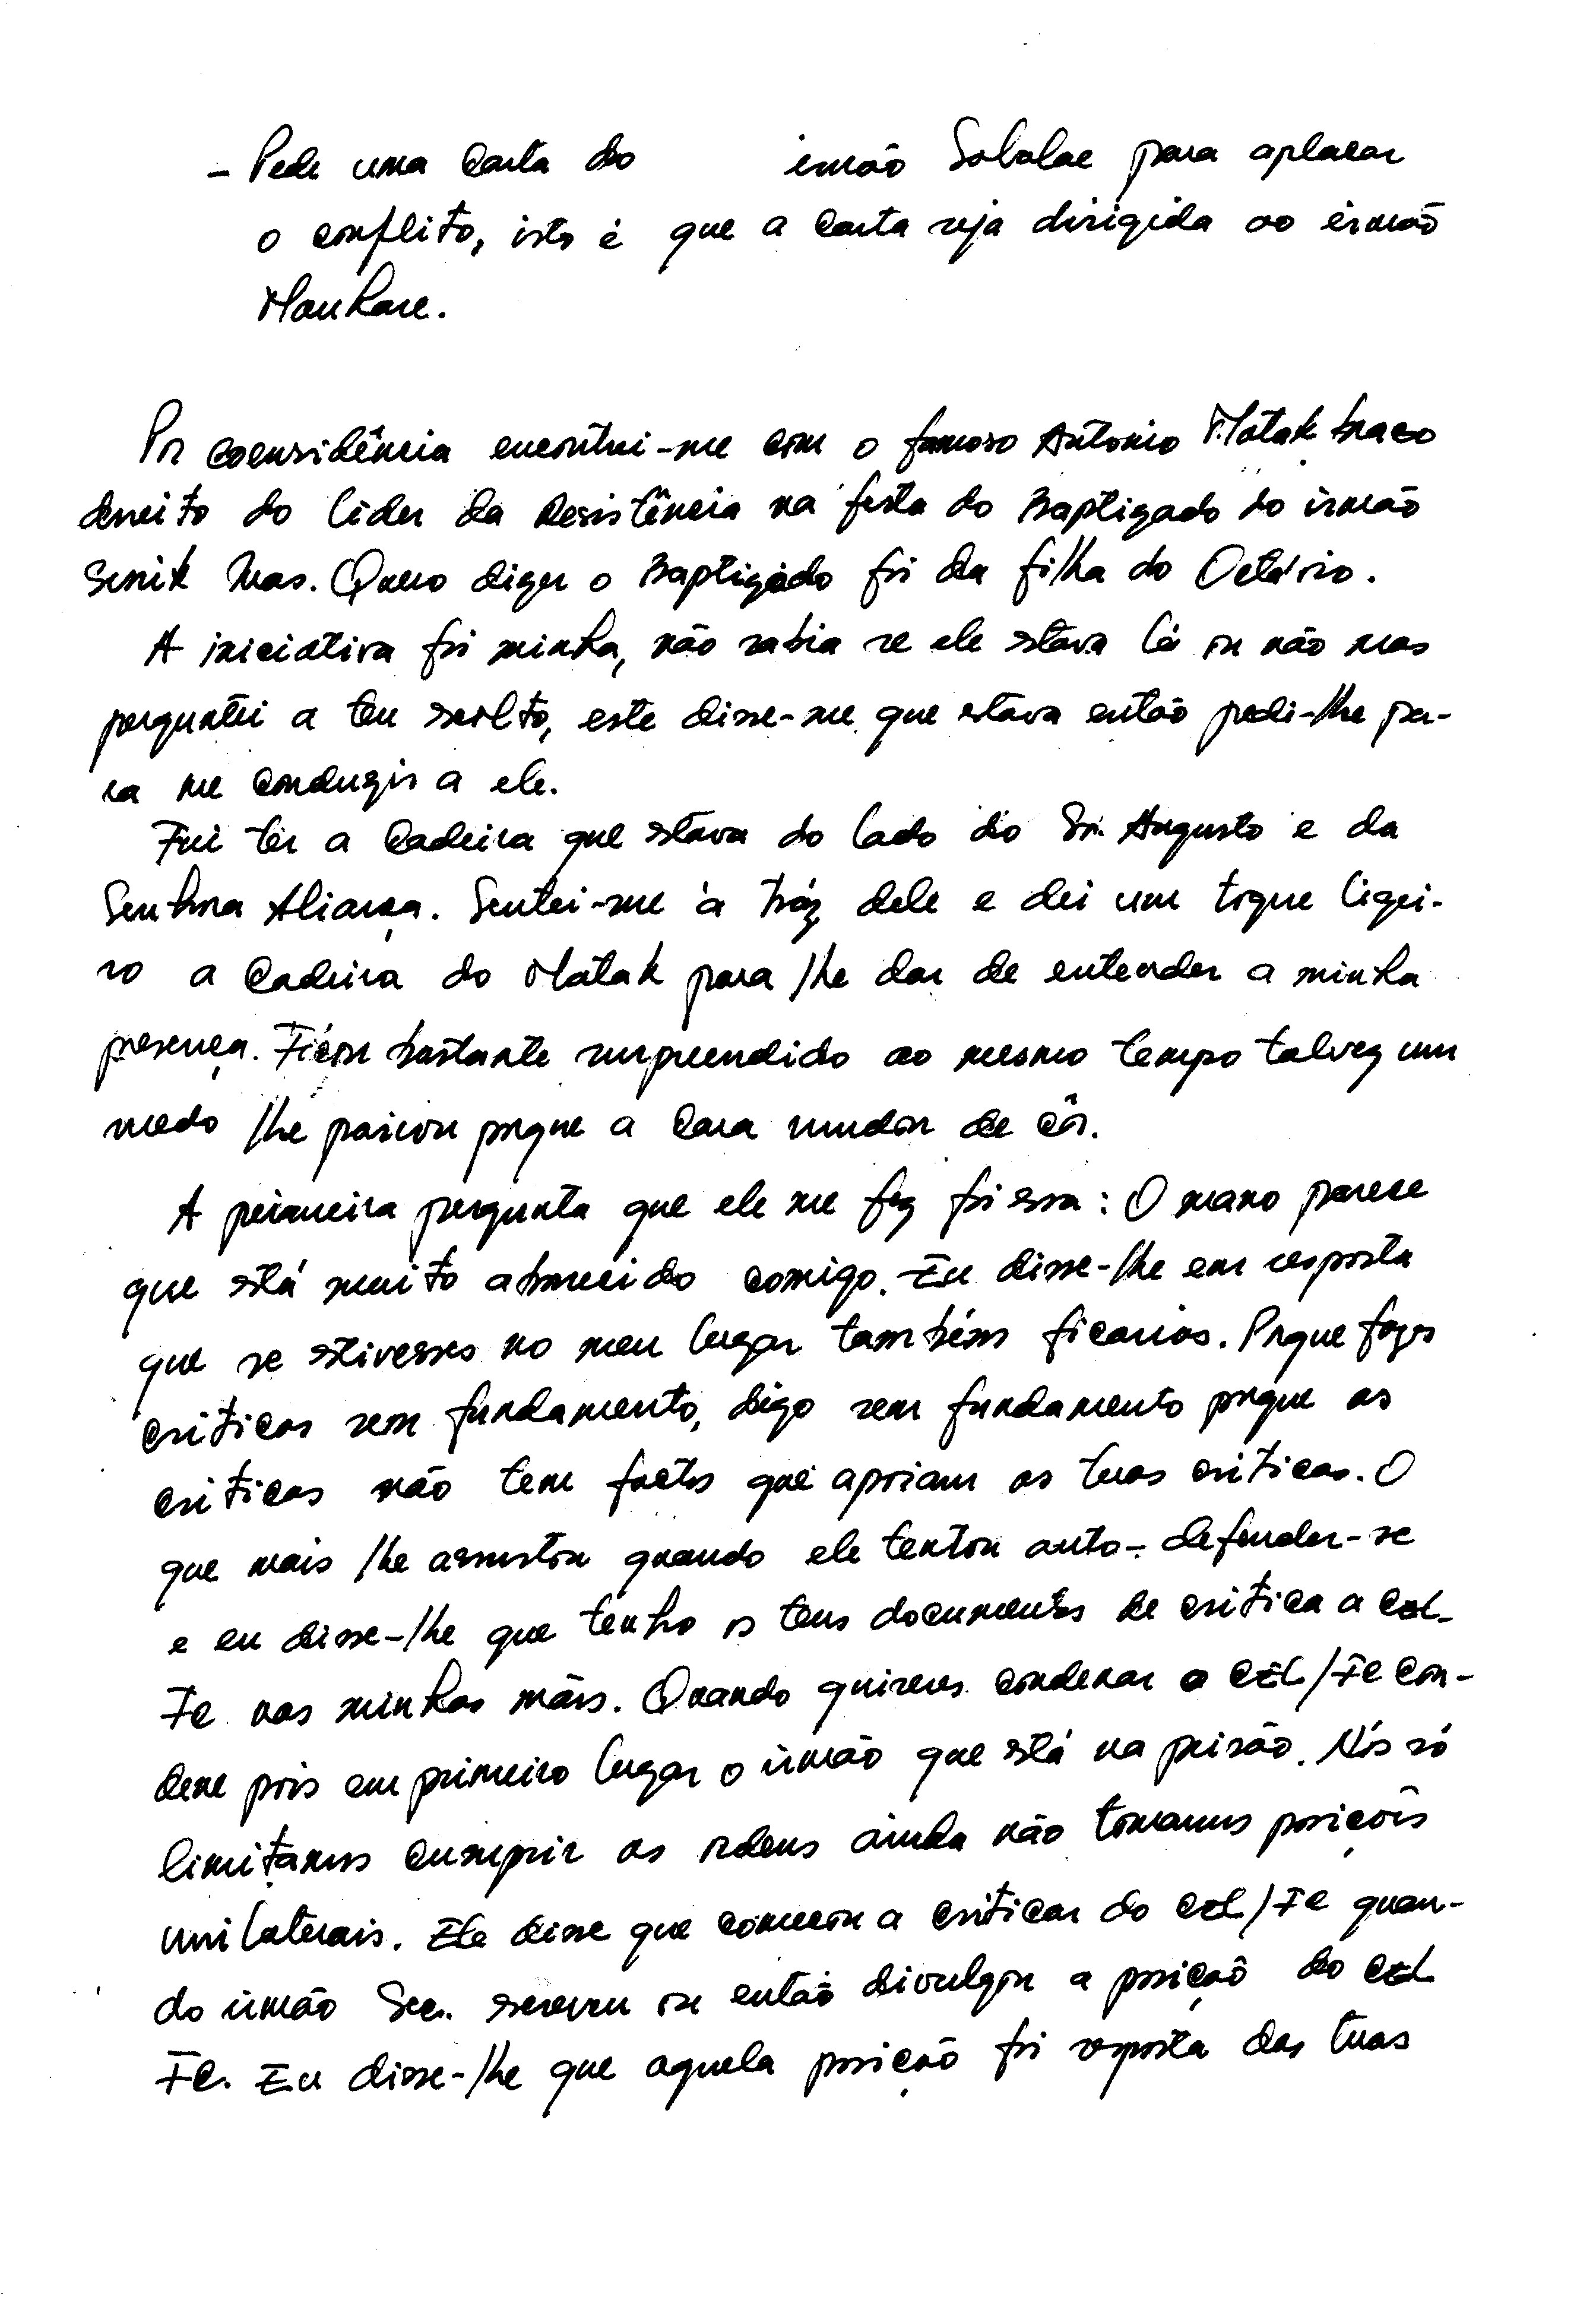 - Pede uma carta do irmão Sabalae para aplacar
o conflito, isto é que a carta seja dirigida ao irmão
Mauhare.
Por coensidência encontrei-me com o famoso Antonio Matak braço
dereito do lider da Resistência na festa do Baptizado do irmão
Senik Mas. Quero dizer o Baptizado foi da filha do Octávio.
A iniciativa foi minha, não sabia se ele estava lá ou não mas
perguntei a teu, este disse-me que estava então pedi-lhe pa-
ra me conduzir a ele.
Fui ter a Cadeira que estava do lado do Sr. Augusto e da
Senhora Aliança. Sentei-me à tráz dele e dei um toque ligei-
ro a Cadeira do Matak para lhe dar de entender a minha
presença. Ficou bastante surpreendido ao mesmo tempo talvez um
medo lhe pairou porque a cara mudou de côr.
A primeira pergunta que ele me fez foi essa: O mano parece
que está muito aborrecido comigo. Eu disse-lhe em resposta
que se estivesses no meu lugar também ficarias. Porque fazes
criticas sem fundamento, digo sem fundamento porque as
criticas não tem factos que apoiam as tuas criticas. O
que mais lhe assustou quando ele tentou auto-defender-se
e eu disse-lhe que tenho os teus documentos de critica a CEL-
FC nas minhas mãos. Quando quiseres condenar a CEL/FC con-
dene pois em primeiro lugar o irmão que está na prisão. Nós só
limitamos cumprir as ordens ainda não tomamos posições
unilaterais. Ele disse que começou a criticar do CEL/FC quan-
do irmão Sec. escreveu ou então divulgou a posição do CEL
FC. Eu disse-lhe que aquela posição foi resposta das tuas